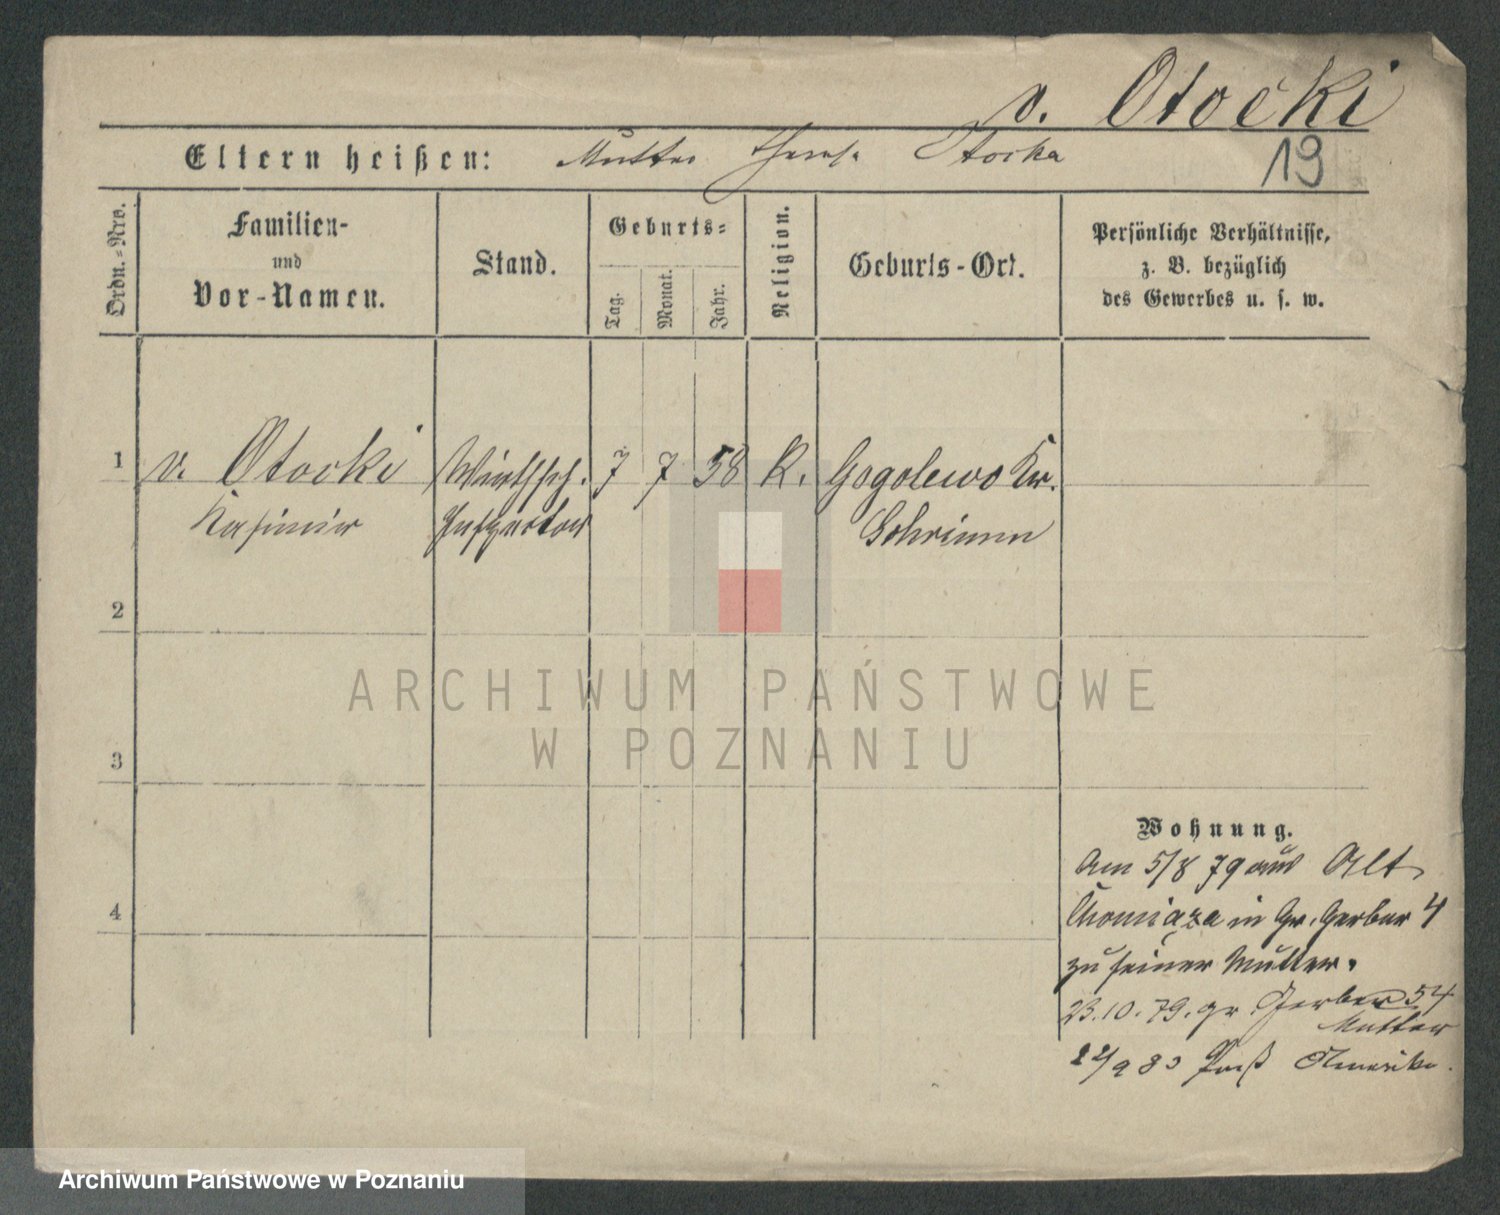 v. Otocki
Eltern heißen: Mutter Theres. Otocka
19
Ordn.-Nro.
Familien-
und
Vor-Namen.
Stand.
Geburts-
Tag.
Monat.
Jahr.
Religion.
Geburts-Ort.
Persönliche Verhältnisse,
z. B. bezüglich
des Gewerbes u. s. w.
1 v. Otocki Wirthsch. 7 7 58 K. Gogolewo Kr.
Kasimir Inspector Schrimm
2
ARCHIWUM PAŃSTWOWE
W POZNANIU
3
Wohnung.
Am 5/8 79 aus Alt
Chomiąza in Gr. Gerber 4
4
zu seiner Mutter.
23.10.79. gr. Gerber 54
Mutter
Paß Amerika.
Archiwum Państwowe w Poznaniu